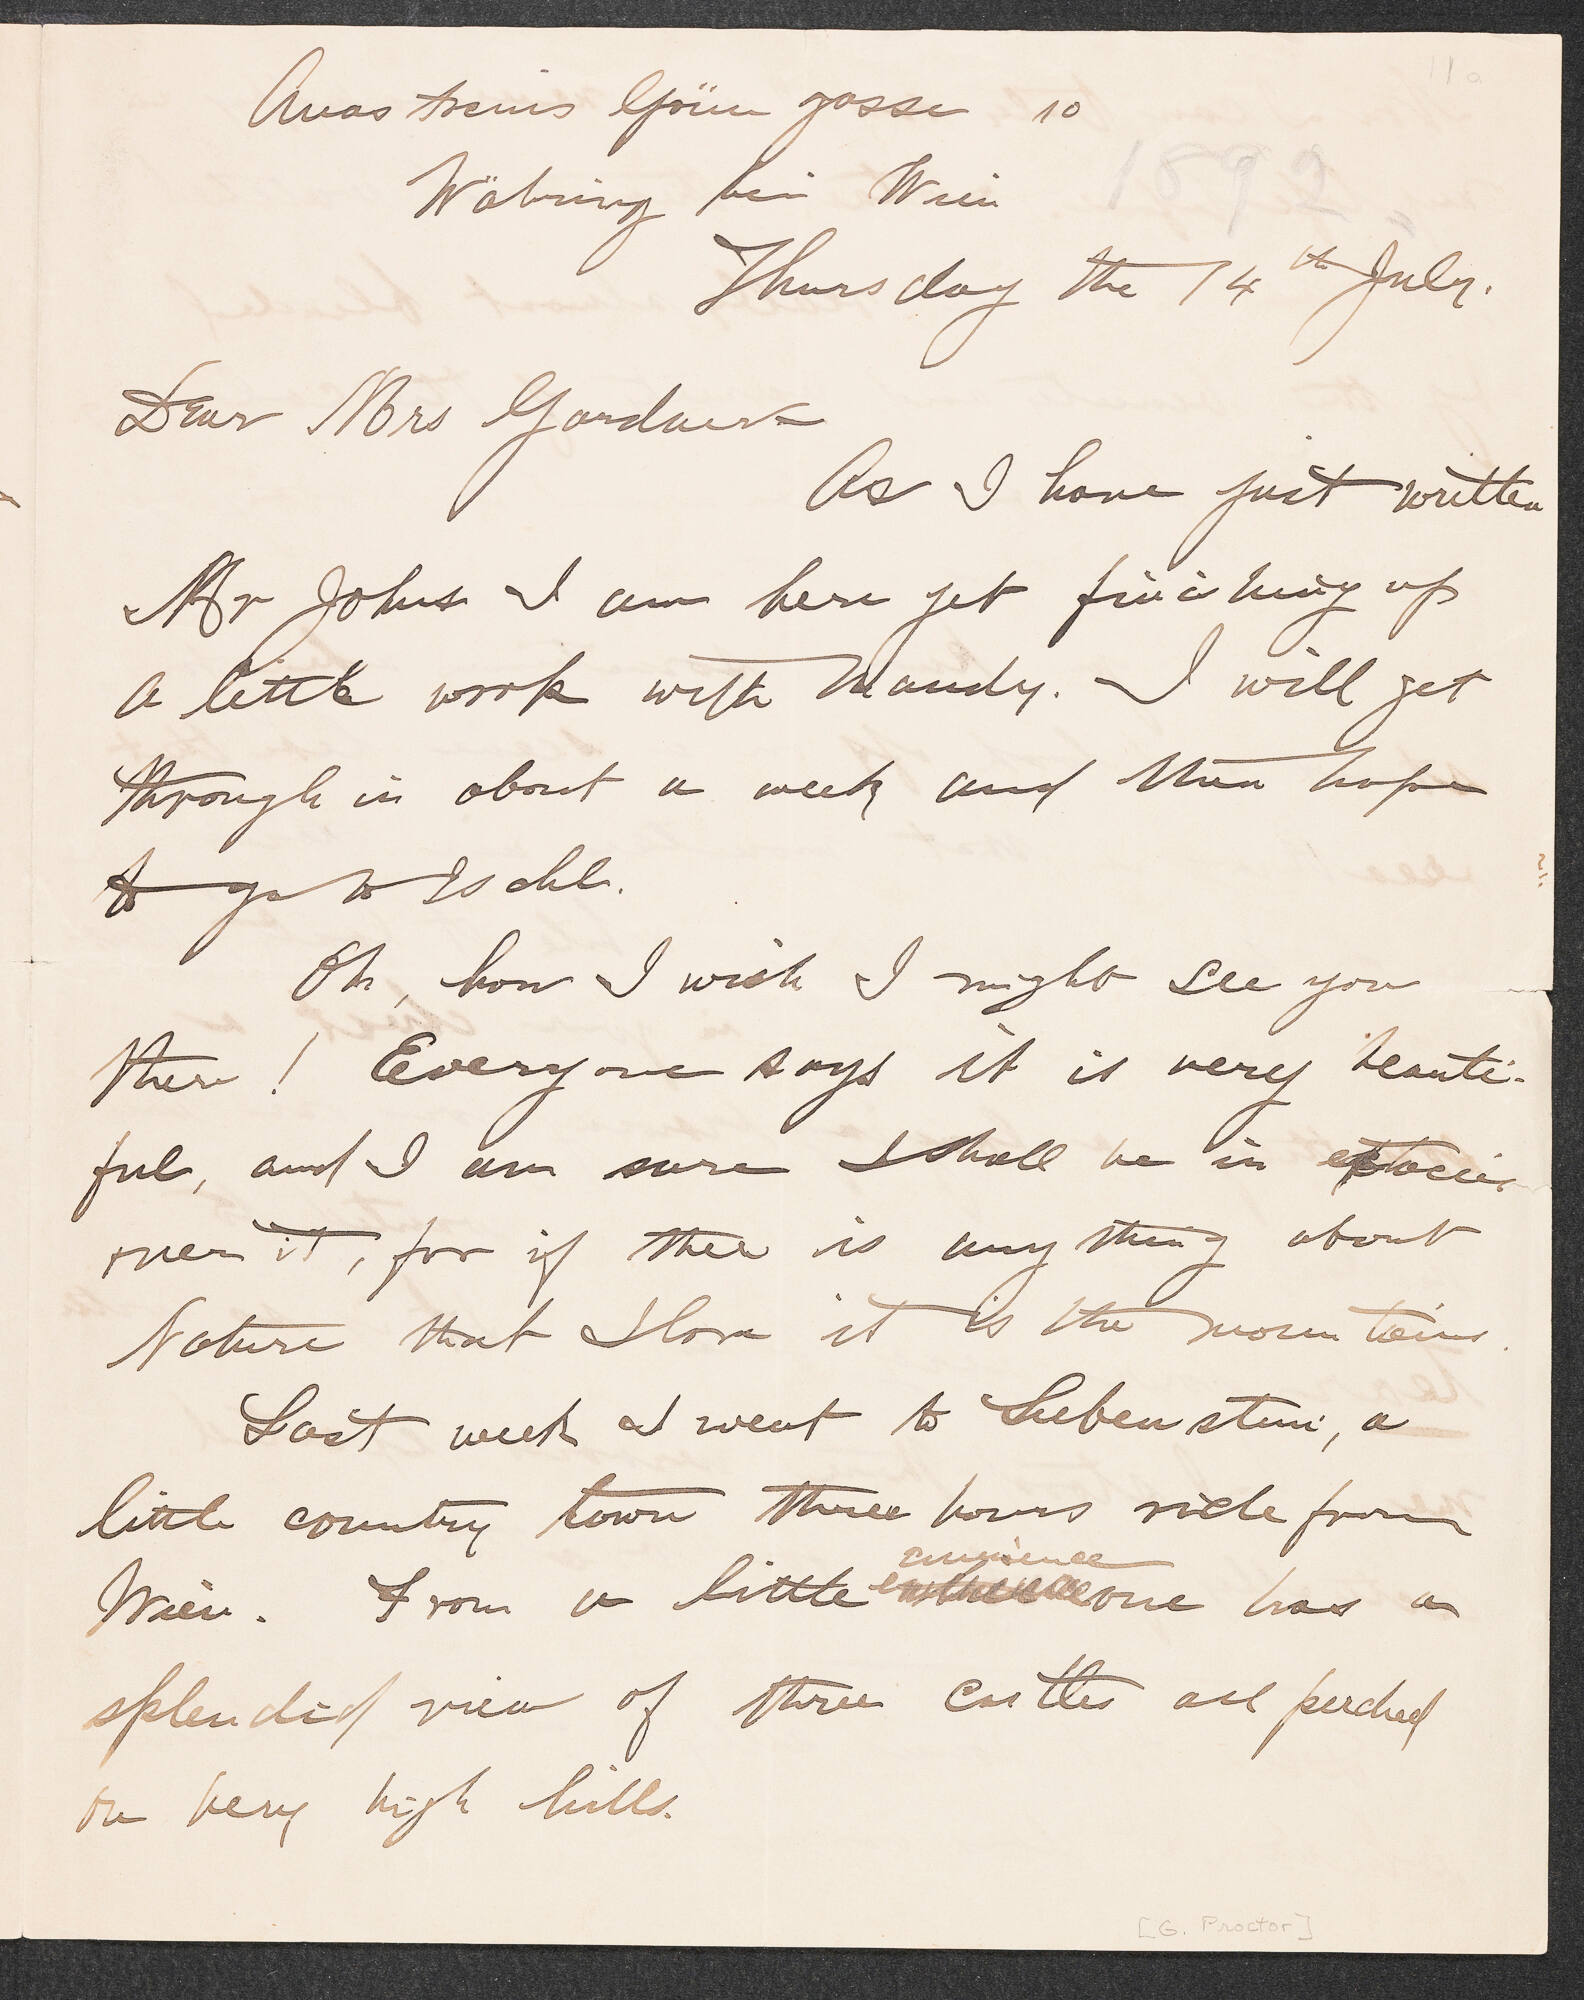 Anastasius Grün gasse 10
Währing bei Wien
1892
Thursday the 14th July.
Dear Mrs Gardner-
As I have just written
Mr Johns I am here yet finishing up
a little work with Mandy. I will get
through in about a week and then hope
to go to Ischl.
Oh, how I wish I might see you
there! Everyone says it is very beauti-
ful, and I am sure I shall be in extacies
over it, for if there is anything about
Nature that I love it is the mountains.
Last week I went to Liebenstein, a
little country town three hours ride from
Wien. From a little eminence one has a
splendid view of three castles all perched
on very high hills.
[G. Proctor]
11a